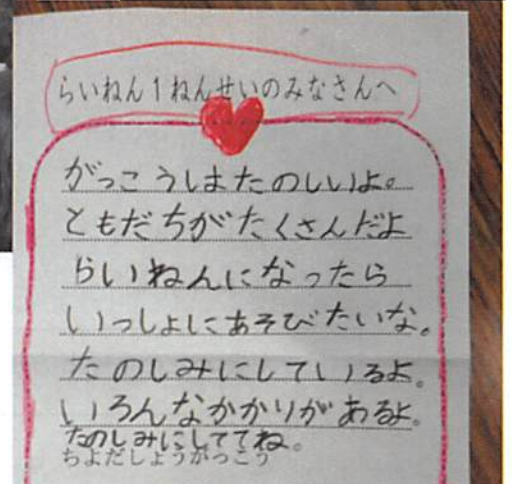 らいねん1ねんせいのみなさんへ
がっこうはたのしいよ。
ともだちがたくさんだよ
らいねんになったら
いっしょにあそびたいな。
たのしみにしているよ。
いろんなかかりがあるよ。
たのしみにしててね。
ちよだしょうがっこう